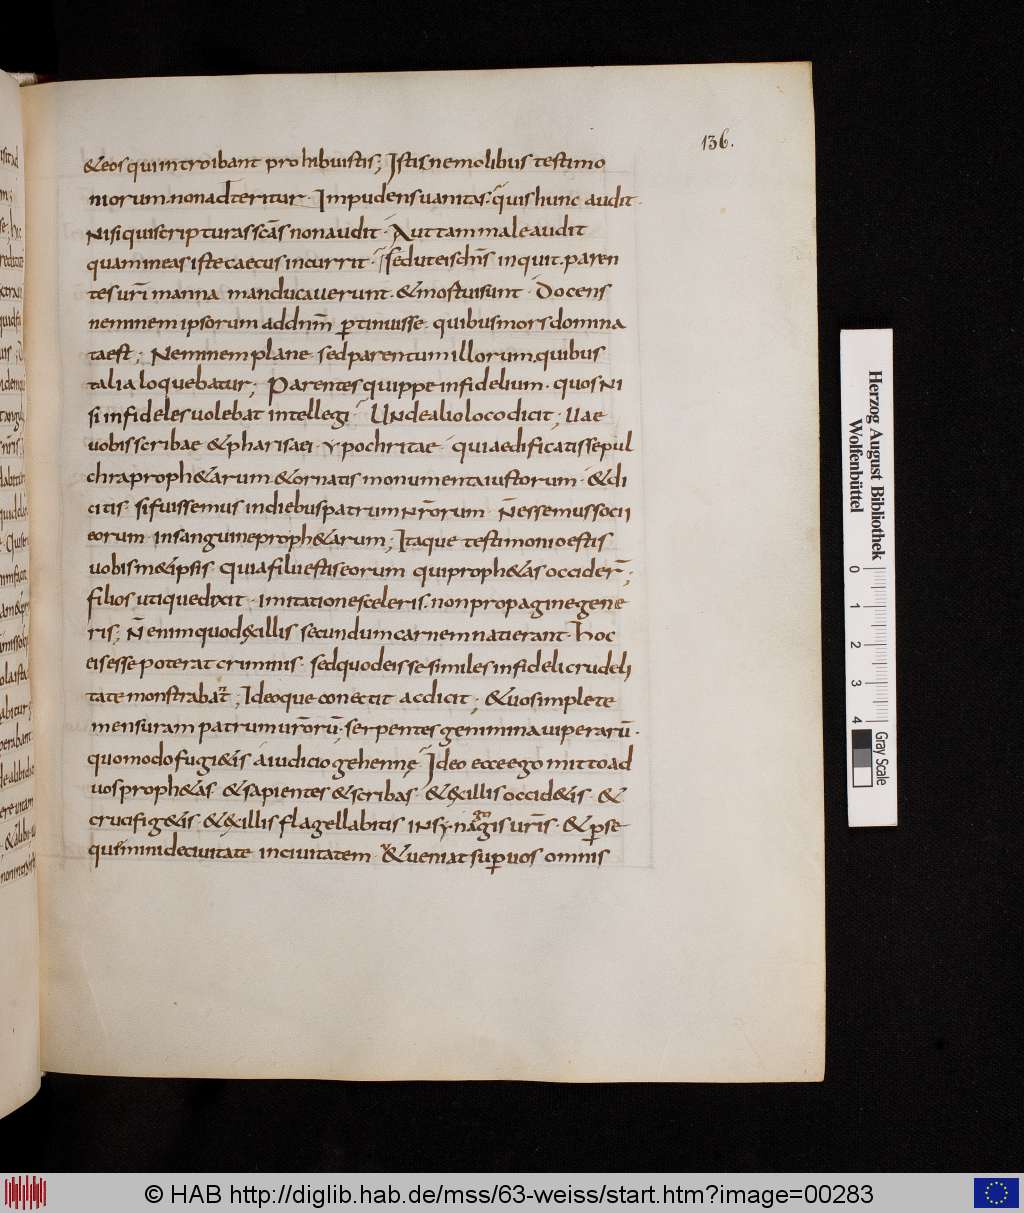 136.
&eos qui introibant prohibuistis; Istis nemo libus testimo
niorum non adteritur. Impudens uanitas. quis hunc audit.
Nisi qui scripturas scas non audit. Aut tam male audit
quam in eas iste caecus incurrit. sed ut eis dns inquit. paren
tes uri manna manducauerunt. & mortui sunt. Docens
neminem ipsorum ad dnm ptinuisse. quibus mors domina
ta est; Neminem plane sed parentum illorum. quibus
talia loquebatur; Parentes quippe infidelium. quos ni
si infideles uolebat intellegi. Unde alio loco dicit; Uae
uobis scribae & pharisaei. ypochritae. qui aedificatis sepul
chra proph&arum. & ornatis monumenta iustorum. & di
citis. si fuissemus in diebus patrum nrorum. n essemus socii
eorum. in sanguine proph&arum; Itaque testimonio estis
uobism&ipsis quia filii estis eorum qui proph&as occider;
filios utique dixit. imitatione sceleris. non propagine gene
ris; N enim quod ex illis secundum carnem nati erant. hoc
eis esse poterat criminis. sed quod eis se similes infideli crudeli
tate monstrabant; Ideoque conectit ac dicit; & uos implete
mensuram patrum urorum. serpentes genimina uiperaru.
quomodo fugi&is a iudicio gehenne. Ideo ecce ego mitto ad
uos proph&as & sapientes & scribas. & ex illis occid&is. &
crucifig&is. & ex illis flagellabitis in synagogis uris. & pse
quemini de ciuitate in ciuitatem. ut & ueniat sup uos omnis
Herzog August Bibliothek
Wolfenbüttel
0 1 2 3 4
Gray Scale
© HAB http://diglib.hab.de/mss/63-weiss/start.htm?image=00283